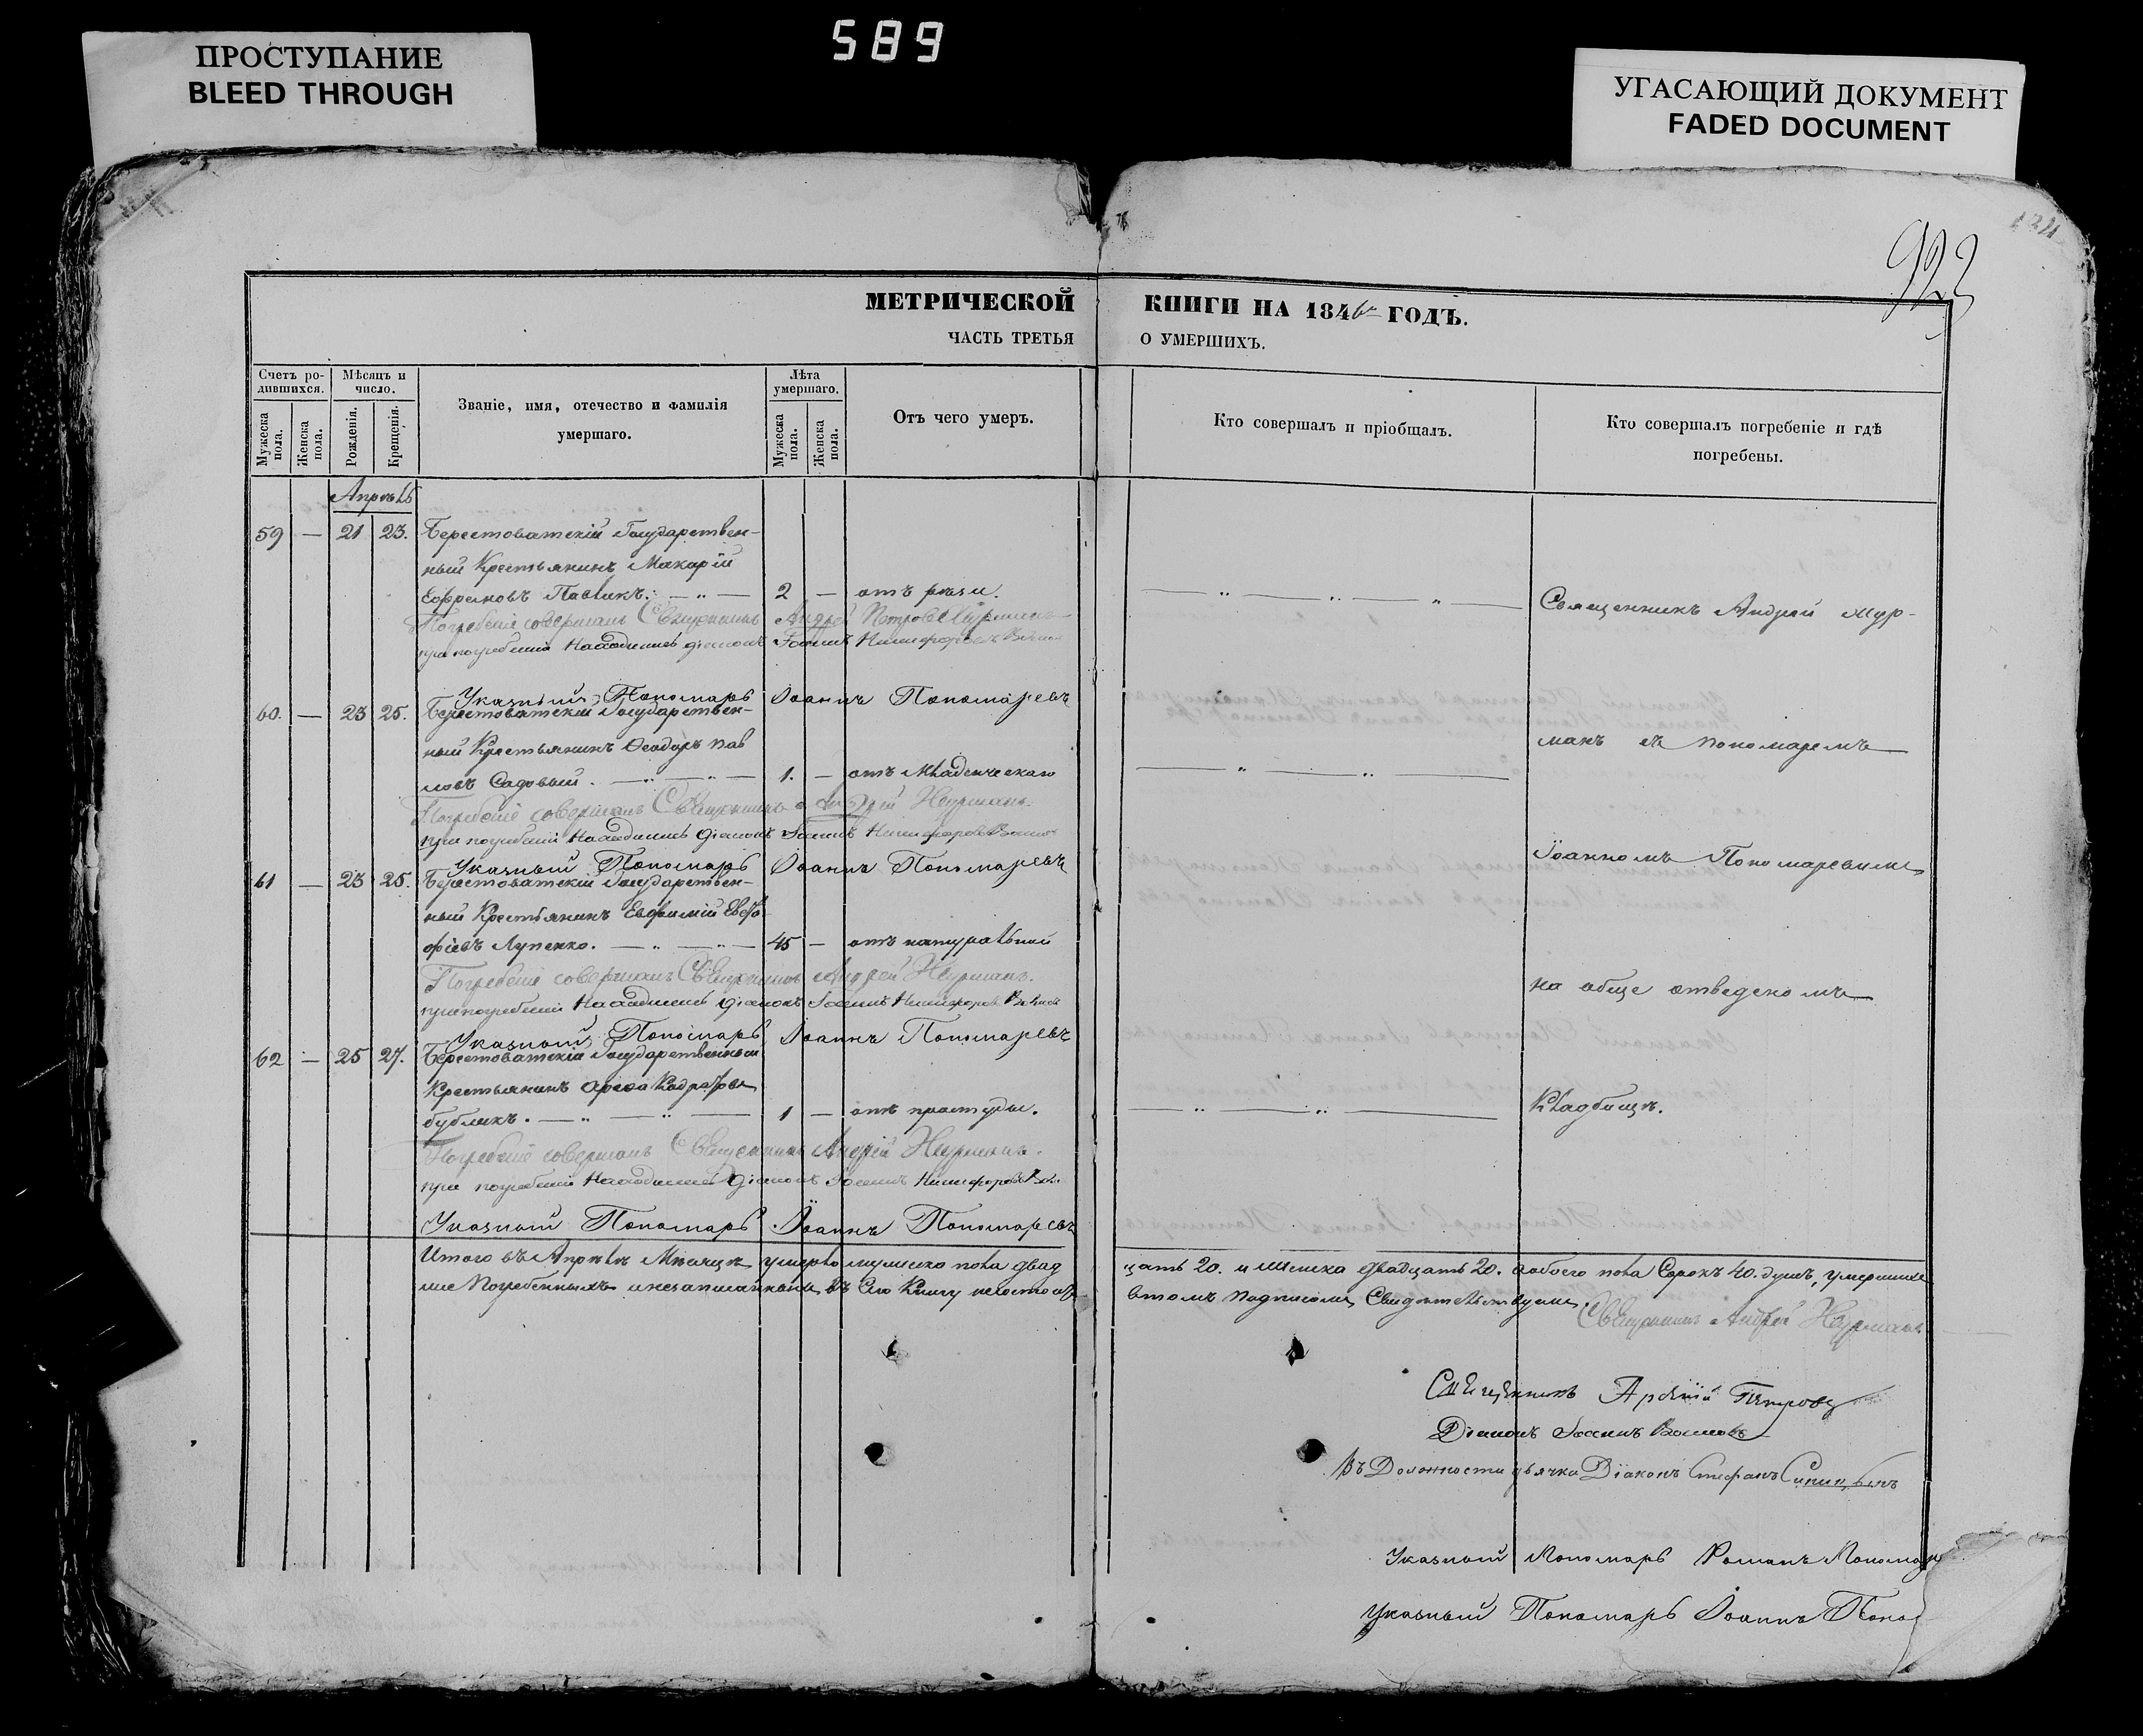 589
ПРОСТУПАНИЕ
BLEED THROUGH
УГАСАЮЩИЙ ДОКУМЕНТ
FADED DOCUMENT
923
МЕТРИЧЕСКОЙ КНИГИ НА 1846 ГОДЪ.
ЧАСТЬ ТРЕТЬЯ О УМЕРШИХЪ.
Счетъ ро-
дившихся.
Мѣсяцъ и
число.
Званіе, имя, отечество и фамилія
умершаго.
Лѣта
умершаго.
Отъ чего умеръ.
Кто совершалъ и пріобщалъ.
Кто совершалъ погребеніе и гдѣ
погребены.
Мужеска пола.
Женска пола.
Рожденія.
Крещенія.
Мужеска пола.
Женска пола.
Апрѣль
59 — 21 23. Берестоватскій Государствен-
ный Крестьянинъ Макарій
Ефремовъ Павликъ. — „ — 2 — отъ рѣзи.
Священникъ Андрей Жур-
Погребеніе совершалъ Священникъ Андрей Петровъ Журманъ
при погребеніи находились діаконъ Іоаннъ Никифоровъ
Указный Пономарь Іоаннъ Пономаревъ
60. — 23 25. Берестоватскій Государствен-
ный Крестьянинъ Ѳеодоръ Пав
ловъ Садовый. — „ — „ — 1. — отъ младенческаго
манъ съ пономаремъ
Погребеніе совершалъ Священникъ Андрей Журманъ.
при погребеніи находились діаконъ Іоаннъ Никифоровъ
Указный Пономарь Іоаннъ Пономаревъ
Іоанномъ Пономаревымъ
61 — 23 25. Берестоватскій Государствен-
ный Крестьянинъ Евфимій
Лупенко. — „ — „ — 45 — отъ натуральной
Погребеніе совершалъ Священникъ Андрей Журманъ.
при погребеніи находились діаконъ Іоаннъ Никифоровъ
на обще отведеномъ
Указный Пономарь Іоаннъ Пономаревъ
62 — 25 27. Берестоватскій Государственный
Крестьянинъ
бубликъ. — „ — „ — 1 — отъ простуды.
Кладбищѣ.
Погребеніе совершалъ Священникъ Андрей Журманъ.
при погребеніи находились діаконъ Іоаннъ Никифоровъ
Указный Пономарь Іоаннъ Пономаревъ
Итого въ Апрѣлѣ Мѣсяцѣ умерло мужеска пола двад
цать 20. и Женска двадцать 20. а обоего пола Сорокъ 40. душъ, умершіе
въ Сію Книгу
въ томъ подписомъ Свидѣтельствуемъ.
Священникъ Андрей Журманъ
Священникъ Арсеній Петровъ
Діаконъ Іоаннъ
Въ Должности дьячка Діаконъ Стефанъ Синицынъ
Указный Пономарь Романъ Пономар
Указный Пономарь Іоаннъ Поно